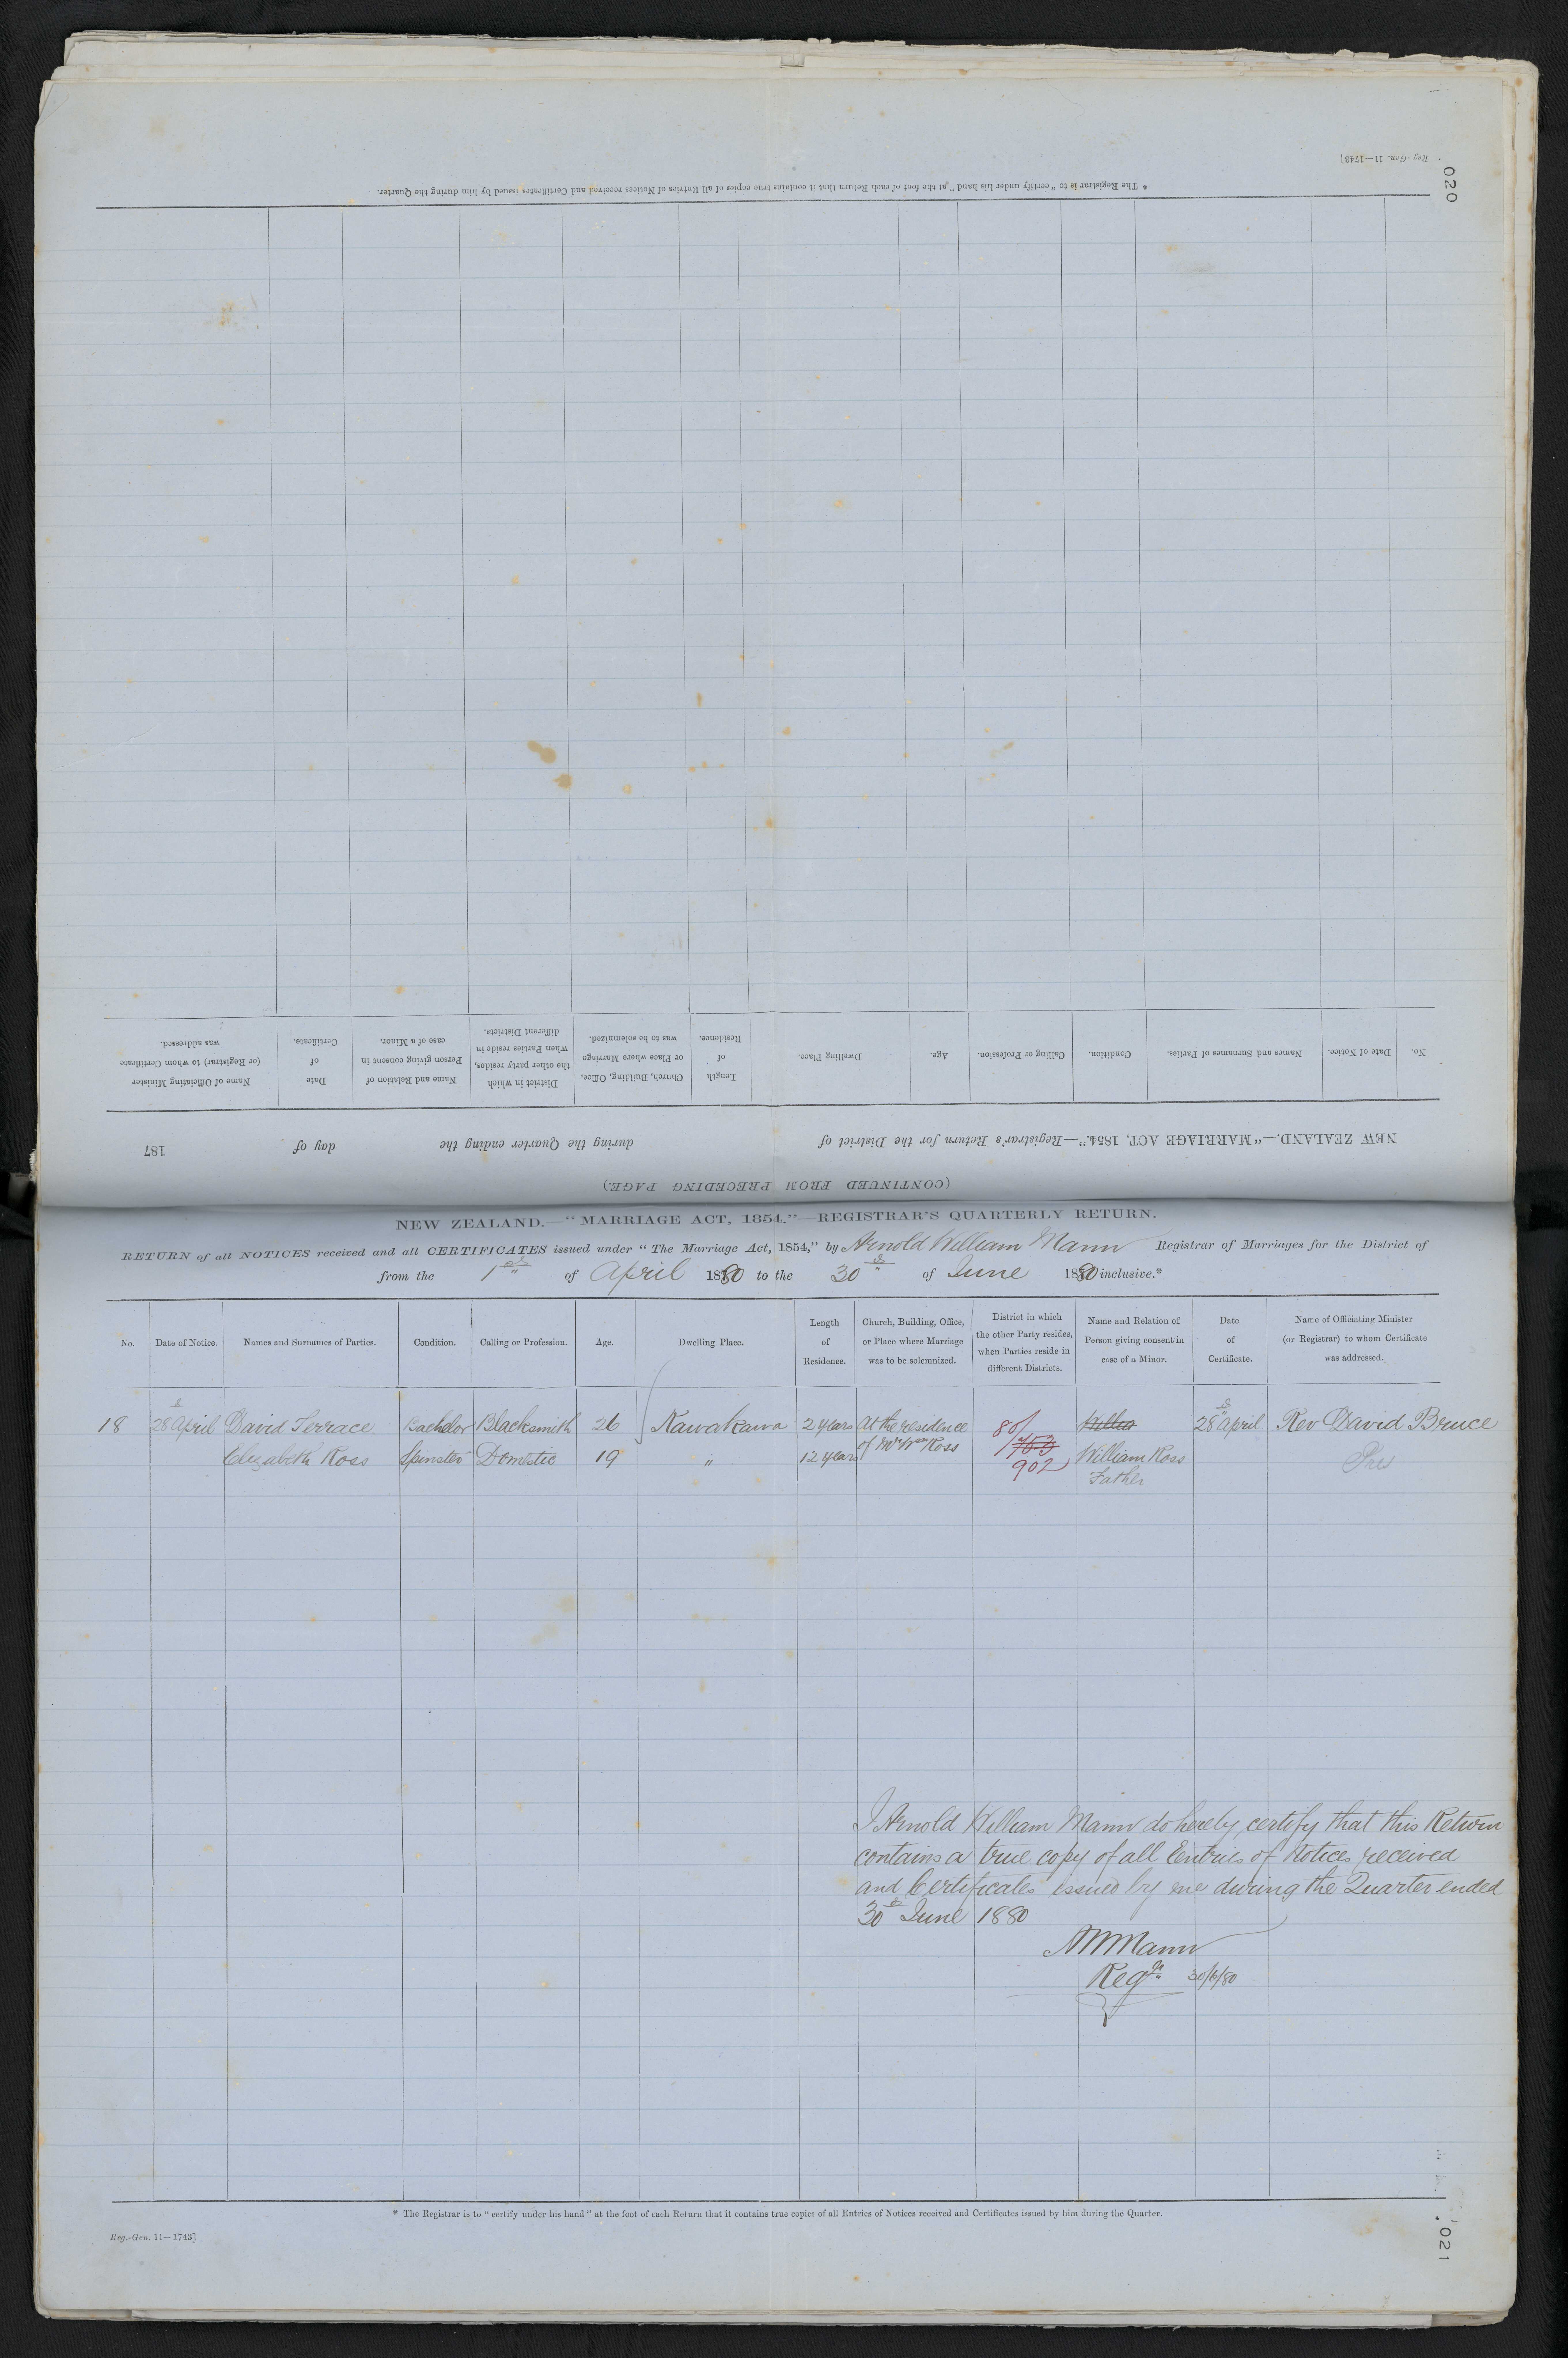 020
Reg.-Gen. 11—1743]
* The Registrar is to "certify under his hand" at the foot of each Return that it contains true copies of all Entries of Notices received and Certificates issued by him during the Quarter.
(CONTINUED FROM PRECEDING PAGE.)
NEW ZEALAND.—"MARRIAGE ACT, 1854."—Registrar's Return for the District of during the Quarter ending the day of 187
No. Date of Notice. Names and Surnames of Parties. Condition. Calling or Profession. Age. Dwelling Place. Length of Residence. Church, Building, Office, or Place where Marriage was to be solemnized. District in which the other party resides, when Parties reside in different Districts. Name and Relation of Person giving consent in case of a Minor. Date of Certificate. Name of Officiating Minister (or Registrar) to whom Certificate was addressed.
NEW ZEALAND.—"MARRIAGE ACT, 1854."—REGISTRAR'S QUARTERLY RETURN.
RETURN of all NOTICES received and all CERTIFICATES issued under "The Marriage Act, 1854," by Arnold William Mann Registrar of Marriages for the District of
from the 1st of April 1880 to the 30th of June 1880 inclusive.*
No. Date of Notice. Names and Surnames of Parties. Condition. Calling or Profession. Age. Dwelling Place. Length of Residence. Church, Building, Office, or Place where Marriage was to be solemnized. District in which the other Party resides, when Parties reside in different Districts. Name and Relation of Person giving consent in case of a Minor. Date of Certificate. Name of Officiating Minister (or Registrar) to whom Certificate was addressed.
18 28th April David Terrace Bachelor Blacksmith 26 Kawakawa 2 years At the residence 80/ Willia 28th April Rev David Bruce
Elizabeth Ross Spinster Domestic 19 " 12 years of Mr Wm Ross 753 William Ross Pres
902 Father
I Arnold William Mann do hereby certify that this Return
contains a true copy of all Entries of Notices received
and Certificates issued by me during the Quarter ended
30th June 1880
AWMann
Regr. 30/6/80
* The Registrar is to "certify under his hand" at the foot of each Return that it contains true copies of all Entries of Notices received and Certificates issued by him during the Quarter.
Reg.-Gen. 11—1743]
021